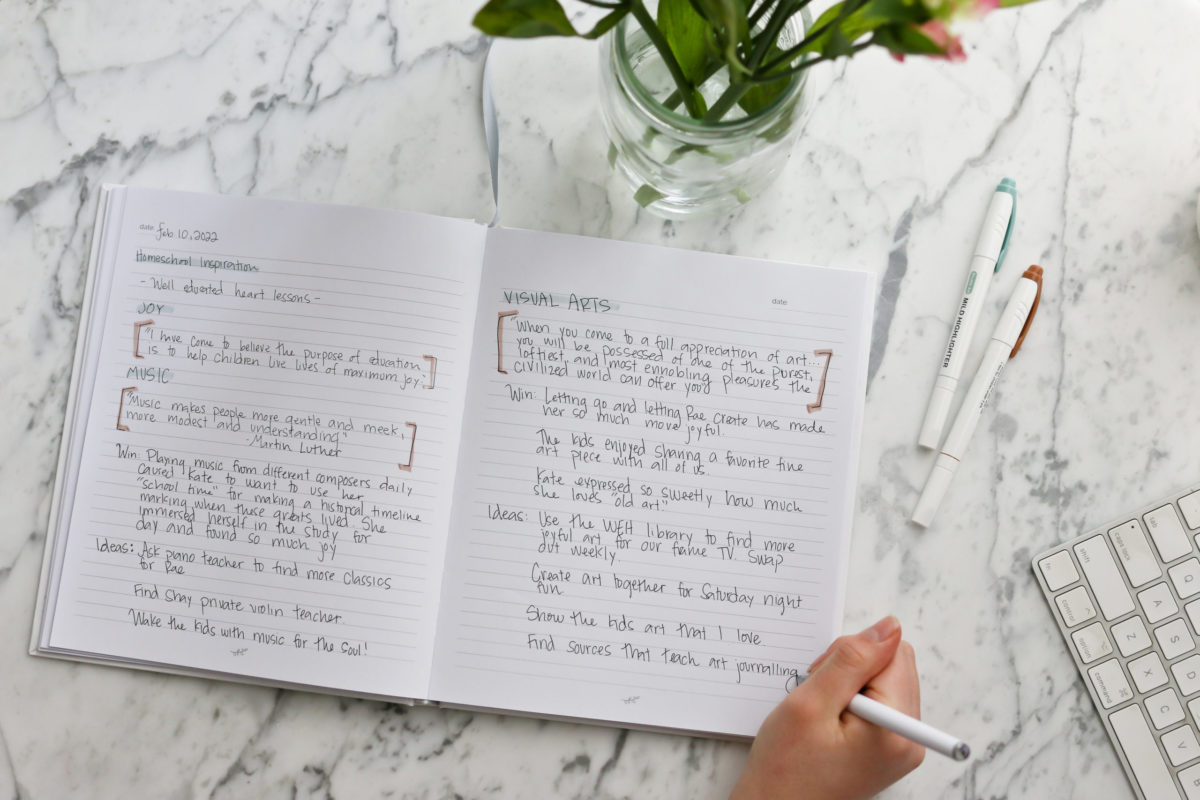 date: Feb 10, 2022
Homeschool Inspiration
- Well educated heart lessons -
JOY
"I have come to believe the purpose of education
is to help children live lives of maximum joy."
MUSIC
"Music makes people more gentle and meek,
more modest and understanding"
-Martin Luther
Win: Playing music from different composers daily
caused Kate to want to use her
"school time" for making a historical timeline
marking when these greats lived. She
immersed herself in the study for
day and found so much joy
Ideas: Ask piano teacher to find more classics
for Rae
Find Shay private violin teacher.
Wake the kids with music for the soul!
date:
VISUAL ARTS
"When you come to a full appreciation of art...
you will be possessed of one of the purest,
loftiest, and most ennobling pleasures the
civilized world can offer you"
Win: Letting go and letting Rae create has made
her so much more joyful.
The kids enjoyed sharing a favorite fine
art piece with all of us.
Kate expressed so sweetly how much
she loves "old art."
Ideas: Use the WEH library to find more
joyful art for our frame TV. Swap
out weekly.
Create art together for Saturday night
fun.
Show the kids art that I love.
Find sources that teach art journalling
MILD HIGHLIGHTER
tab
Q
caps lock
A
S
D
shift
Z
X
C
V
B
fn
control
option
command